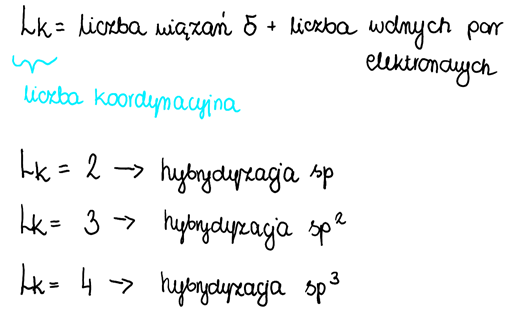 Lk = liczba wiązań δ + liczba wolnych par
elektronowych
liczba koordynacyjna
Lk = 2 → hybrydyzacja sp
Lk = 3 → hybrydyzacja sp²
Lk = 4 → hybrydyzacja sp³